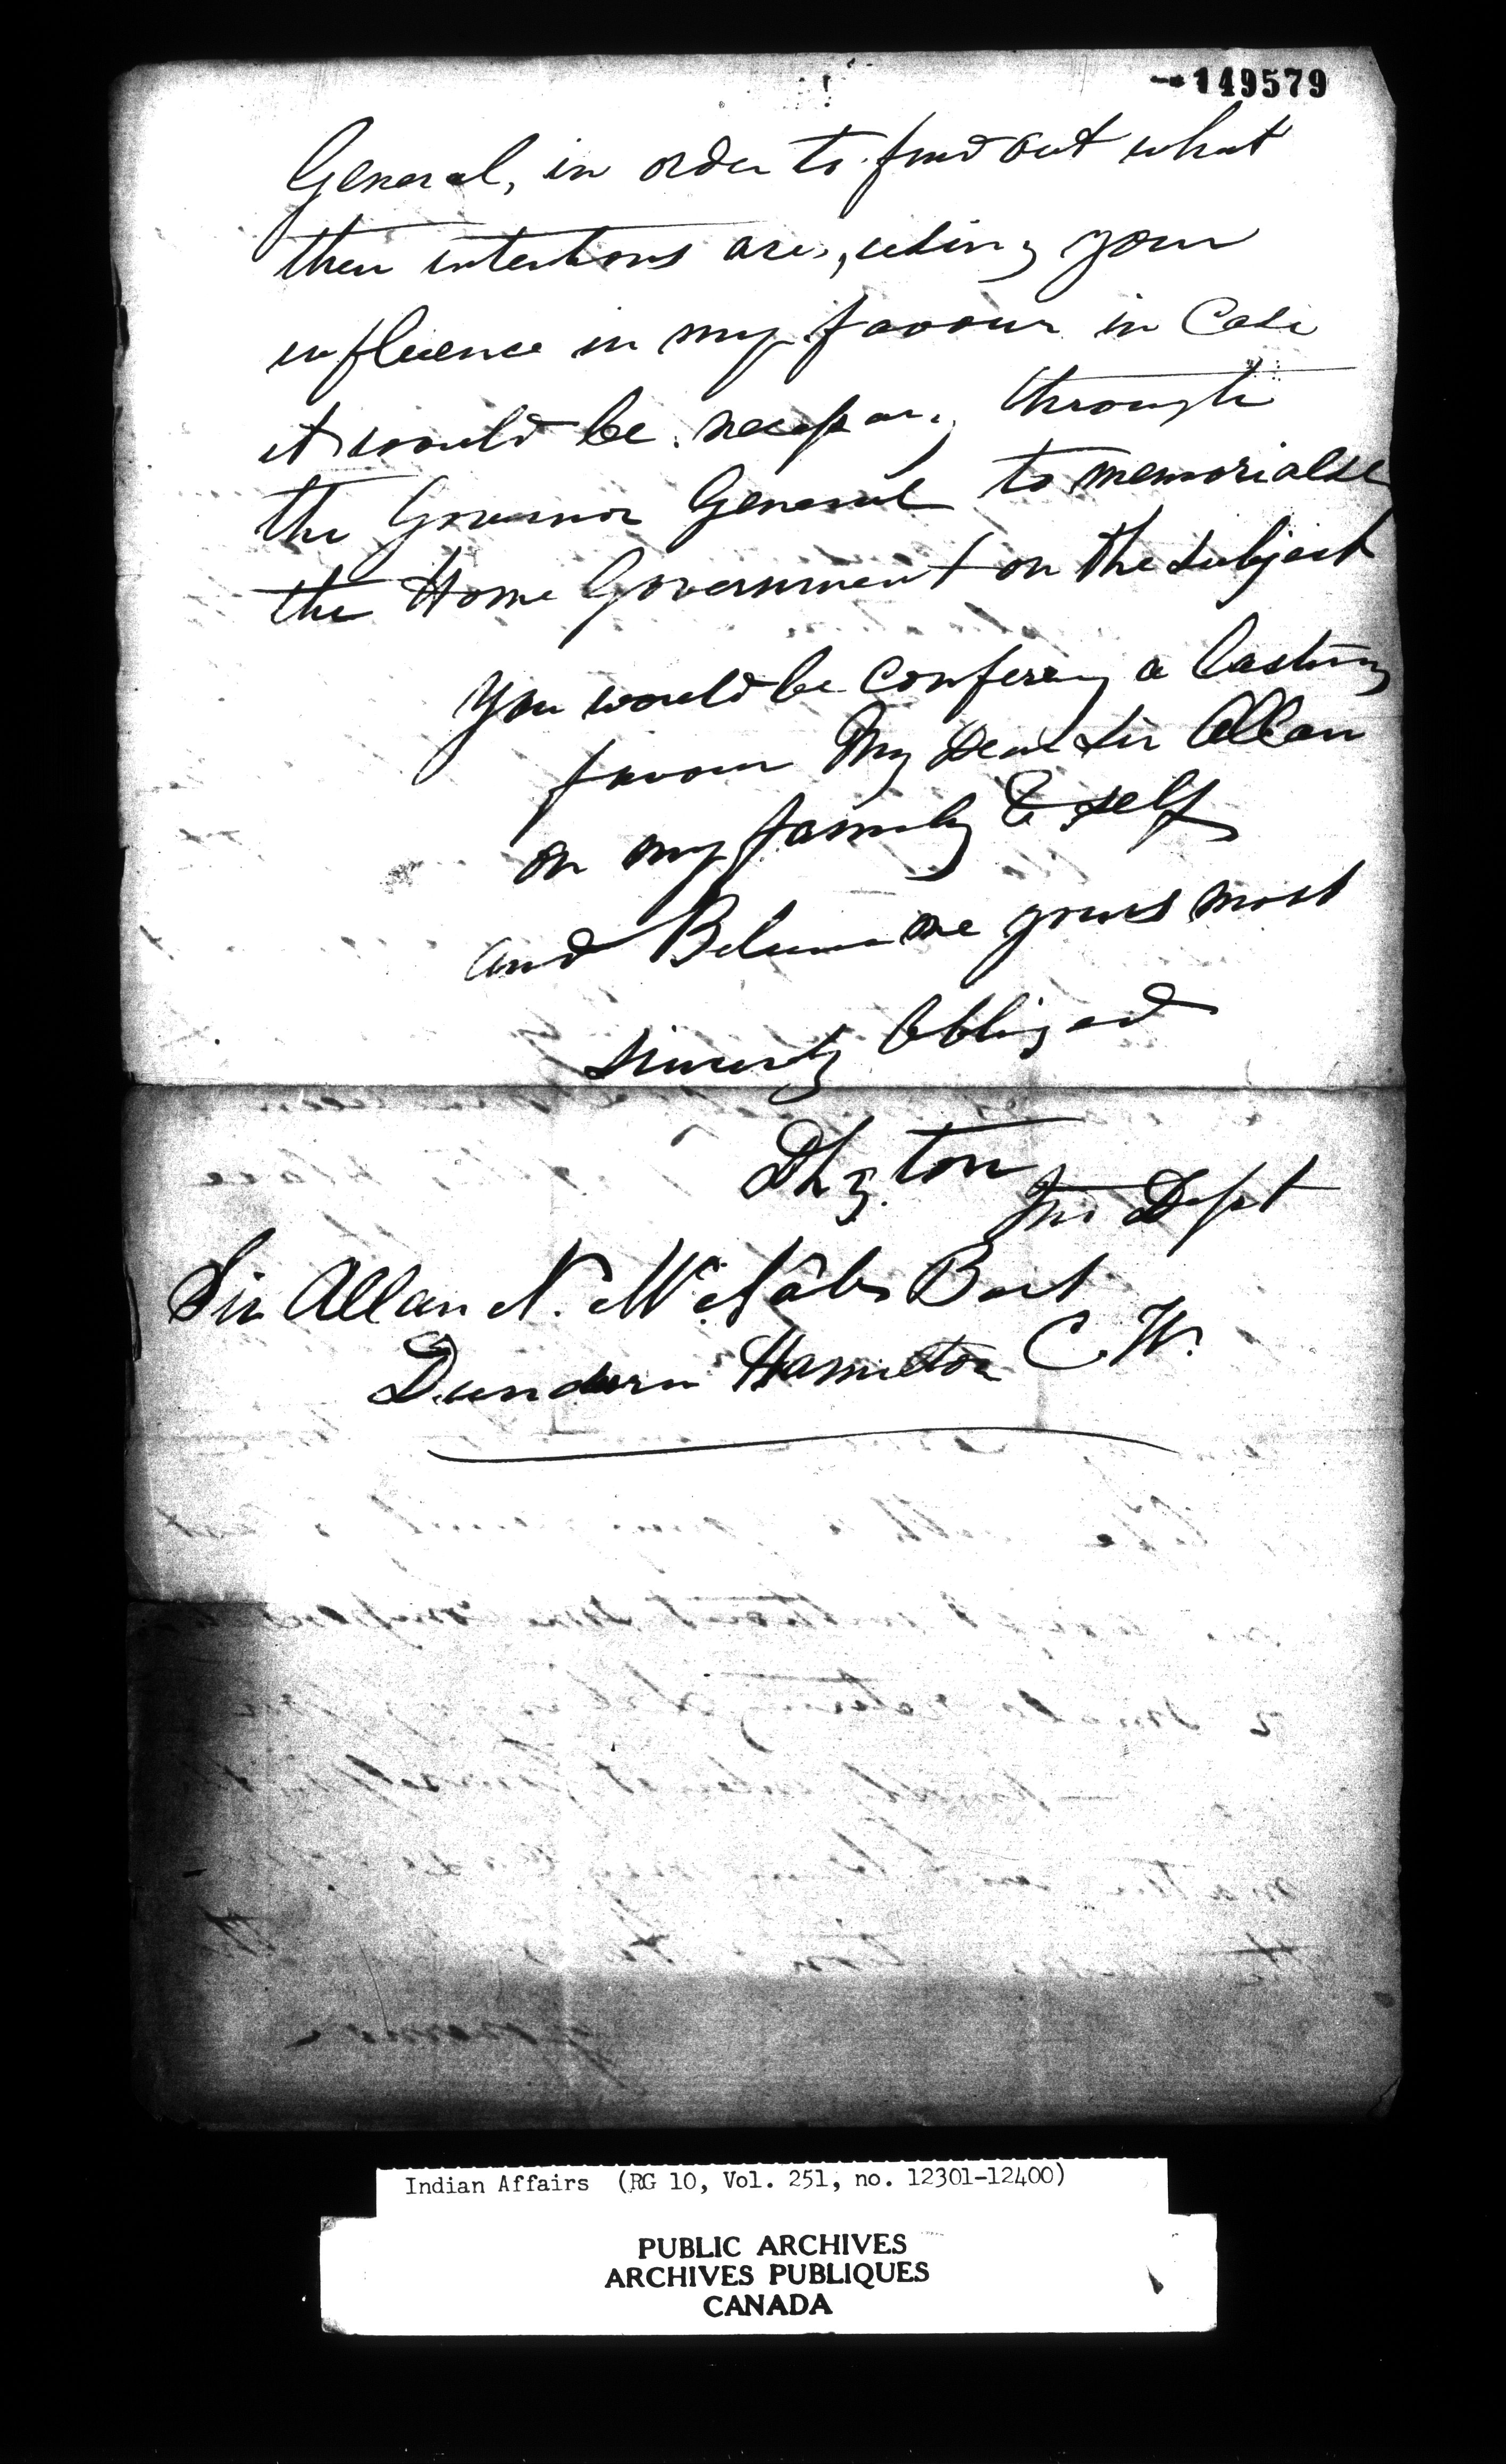 149579
General, in order to find out what
their intentions are, using your
influence in my favour in Case
it would be necessary through
the Governor General to memorialse
the Home Government on the subject
You would be confering a lasting
favour My Dear Sir Allan
on my family & self
and Believe me yours most
sincerely Obbliged
Ind Dept
Sir Allan N. McNabb Bart
Dundurn Hamilton C. W.
Indian Affairs (RG 10, Vol. 251, no. 12301-12400)
PUBLIC ARCHIVES
ARCHIVES PUBLIQUES
CANADA